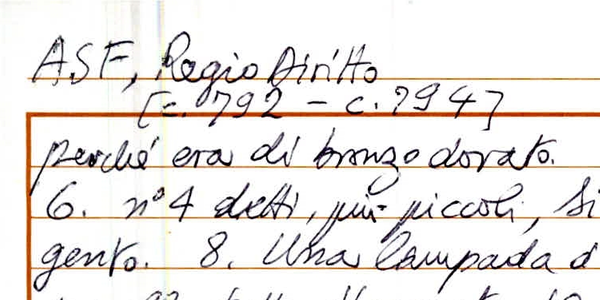 ASF, Regio Diritto
[c. 792 - c. 794]
perché era di bronzo dorato.
6. n° 4 detti, più piccoli, si
gento. 8. Una lampada d